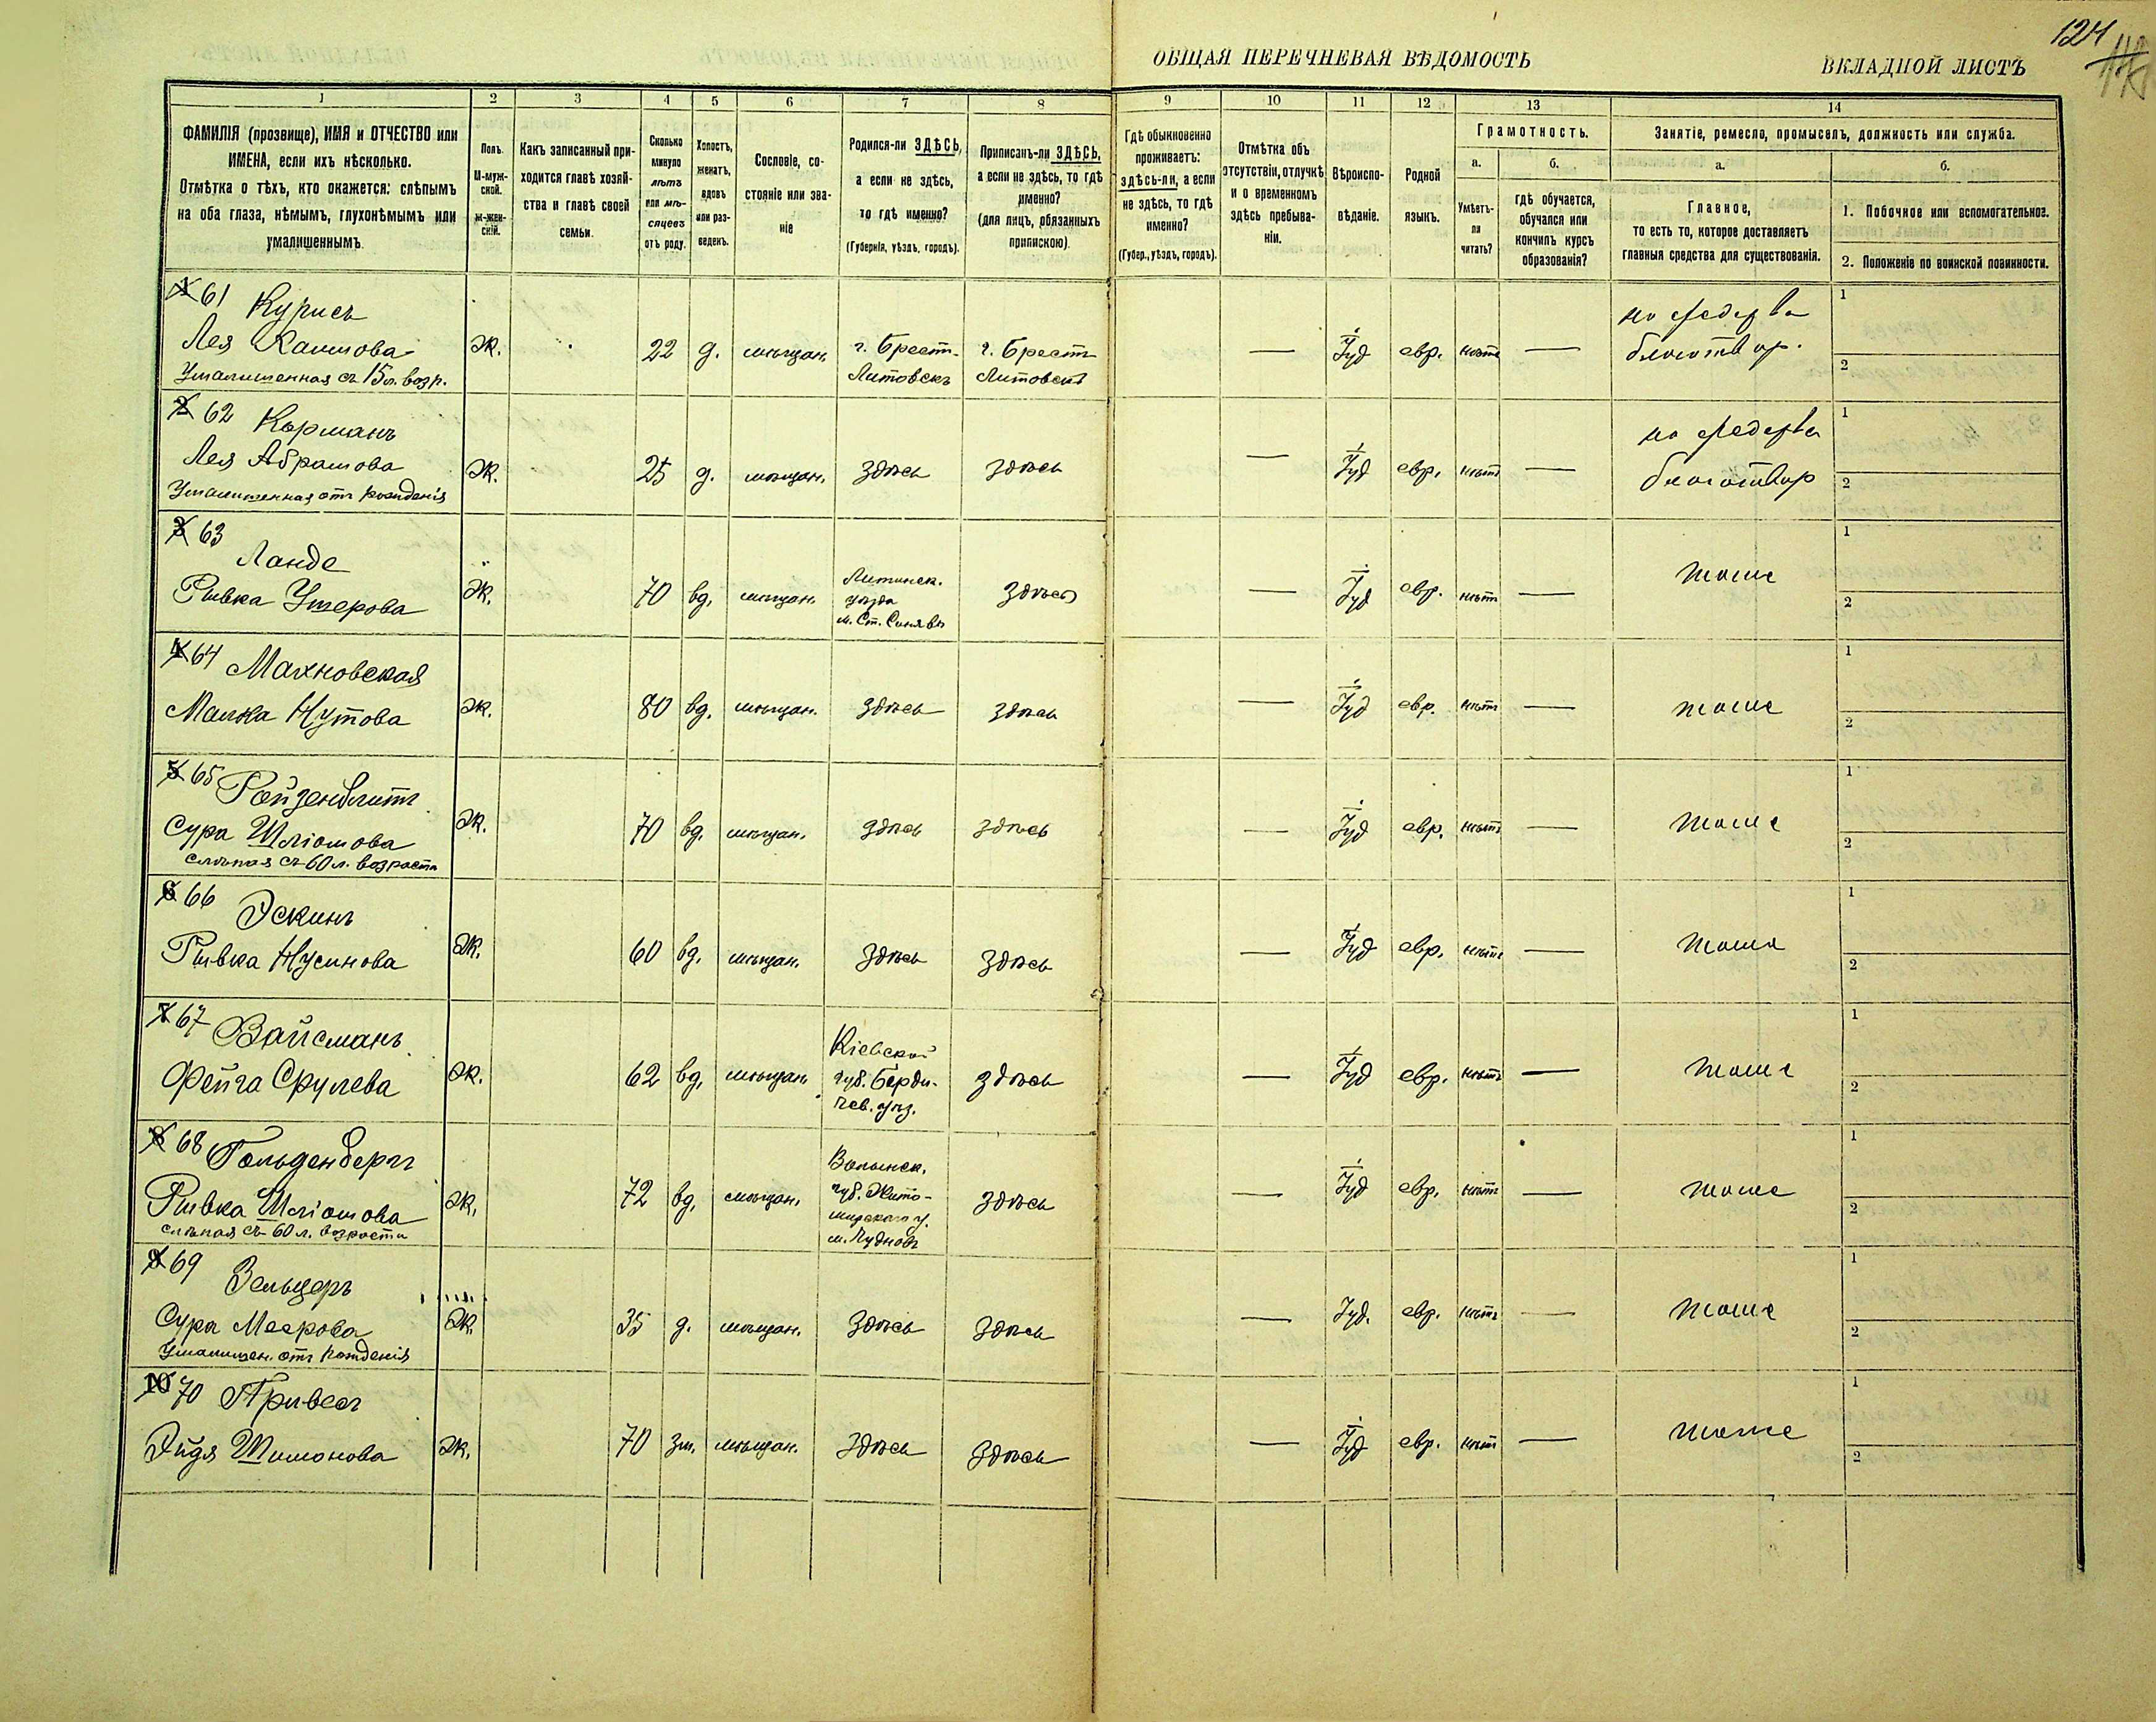 124
ОБЩАЯ ПЕРЕЧНЕВАЯ ВѢДОМОСТЬ
ВКЛАДНОЙ ЛИСТЪ
1 2 3 4 5 6 7 8 9 10 11 12 13 14
ФАМИЛІЯ (прозвище), ИМЯ и ОТЧЕСТВО или
ИМЕНА, если ихъ нѣсколько.
Отмѣтка о тѣхъ, кто окажется: слѣпымъ
на оба глаза, нѣмымъ, глухонѣмымъ или
умалишеннымъ.
Полъ.
М-муж-
ской.
Ж-жен-
скій.
Какъ записанный при-
ходится главѣ хозяй-
ства и главѣ своей
семьи.
Сколько
минуло
лѣтъ
или мѣ-
сяцевъ
отъ роду.
Холостъ,
женатъ,
вдовъ
или раз-
веденъ.
Сословіе, со-
стояніе или зва-
ніе
Родился-ли ЗДѢСЬ,
а если не здѣсь,
то гдѣ именно?
(Губернія, уѣздъ, городъ).
Приписанъ-ли ЗДѢСЬ,
а если не здѣсь, то гдѣ
именно?
(для лицъ, обязанныхъ
припискою)
Гдѣ обыкновенно
проживаетъ:
здѣсь-ли, а если
не здѣсь, то гдѣ
именно?
(Губер., уѣздъ, городъ).
Отмѣтка объ
отсутствіи, отлучкѣ
и о временномъ
здѣсь пребыва-
ніи.
Вѣроиспо-
вѣданіе.
Родной
языкъ.
Грамотность.
а.
Умѣетъ-
ли
читать?
б.
гдѣ обучается,
обучался или
кончилъ курсъ
образованія?
Занятіе, ремесло, промыселъ, должность или служба.
а.
Главное,
то есть то, которое доставляетъ
главныя средства для существованія.
б.
1. Побочное или вспомогательное.
2. Положеніе по воинской повинности.
1 61 Курисъ
Лея Хаимова
Умалишенная съ 15 л. возр.
Ж. 22 д. мѣщан.
г. Брест-
Литовскъ
г. Брестъ
Литовскъ
— Іуд евр. нѣтъ —
на средства
благотвор.
1
2
2 62 Корманъ
Лея Абрамова
Умалишенная отъ рожденія
Ж. 25 д. мѣщан. здѣсь здѣсь — Іуд евр. нѣтъ —
на средства
благотвор
1
2
3 63
Ланде
Рывка Ушерова
Ж. 70 вд. мѣщан.
Литинск.
уѣзда
м. Ст. Синява
здѣсь — Іуд евр. нѣтъ — тоже
1
2
4 64 Махновская
Малка Нутова
Ж. 80 вд. мѣщан. здѣсь здѣсь — Іуд евр. нѣтъ — тоже
1
2
5 65 Ройзенблитъ
Сура Шліомова
слѣпая съ 60 л. возраста
Ж. 70 вд. мѣщан. здѣсь здѣсь — Іуд евр. нѣтъ — тоже
1
2
6 66 Эскинъ
Рывка Нусинова
Ж. 60 вд. мѣщан. здѣсь здѣсь — Іуд евр. нѣтъ — тоже
1
2
7 67 Вайсманъ
Фейга Срулева
Ж. 62 вд. мѣщан.
Кіевской
губ. Берди-
чев. уѣз.
здѣсь — Іуд евр. нѣтъ — тоже
1
2
8 68 Гольденбергъ
Рывка Шліомова
слѣпая съ 60 л. возраста
Ж. 72 вд. мѣщан.
Волынск.
губ. Жито-
мирскаго у.
м. Чудновъ
здѣсь — Іуд евр. нѣтъ — тоже
1
2
9 69 Зельцеръ
Сура Меерова
Умалишен. отъ рожденія
Ж. 35 д. мѣщан. здѣсь здѣсь — Іуд. евр. нѣтъ — тоже
1
2
10 70 Привесъ
Эйдя Шимонова
Ж. 70 зм. мѣщан. здѣсь здѣсь — Іуд евр. нѣтъ — тоже
1
2